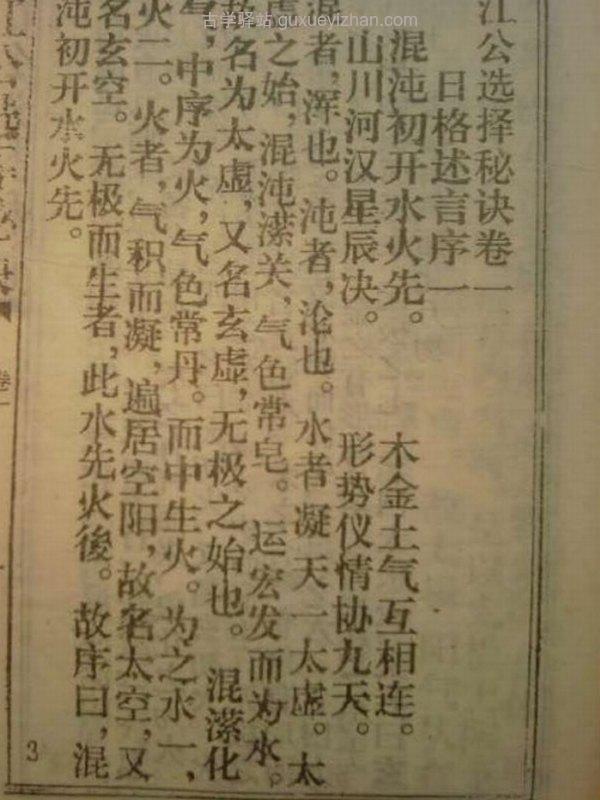 古学驿站 guxueyizhan.com
江公选择秘诀卷一
日格述言序一
混沌初开水火先。 木金土气互相连。
山川河汉星辰决。 形势仪情协九天。
混者，浑也。沌者，沦也。水者凝 天一太虚。太
虚之始，混沌潆关，气色常皂。运宏发而为水。
名为太虚，又名玄虚，无极之始也。混潆化
气，中序为火，气色常丹。而中生火。为之水一，
火二。火者，气积而凝，遍居空阳，故名太空，又
名玄空。无极而生者，此水先火後。故序曰，混
沌初开水火先。
卷一
3